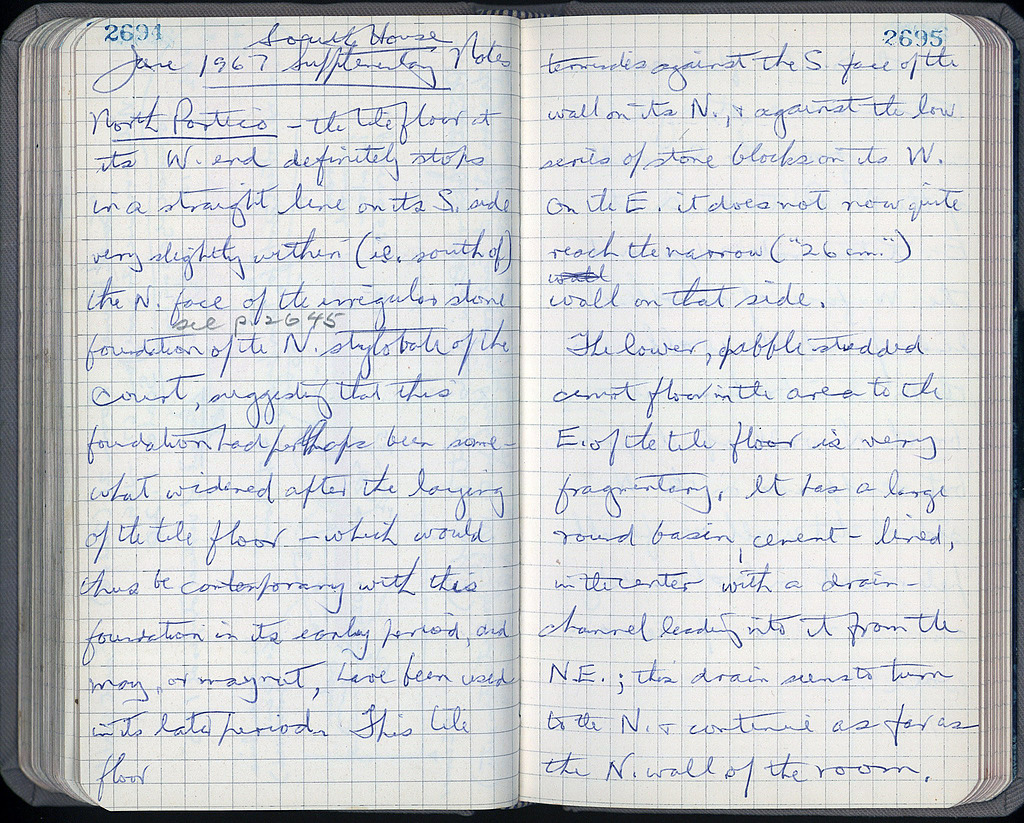 2694
South House
June 1967 Supplementary Notes
North Portico - the tile floor at
its W. end definitely stops
in a straight line on its S. side
very slightly within (i.e. south of)
the N. face of the irregular stone
see p. 2645
foundation of the N. stylobate of the
Court, suggesting that this
foundation had perhaps been some-
what widened after the laying
of the tile floor - which would
thus be contemporary with this
foundation in its early period, and
may, or may not, have been used
in its late period. This tile
floor
2695
terminates against the S. face of the
wall on its N., & against the low
series of stone blocks on its W.
On the E. it does not now quite
reach the narrow ("26 cm.")
wall
wall on that side.
The lower, pebble-studded
cement floor in the area to the
E. of the tile floor is very
fragmentary. It has a large
round basin, cement-lined,
in the center with a drain-
channel leading into it from the
N.E.; this drain seems to turn
to the N. & continue as far as
the N. wall of the room.